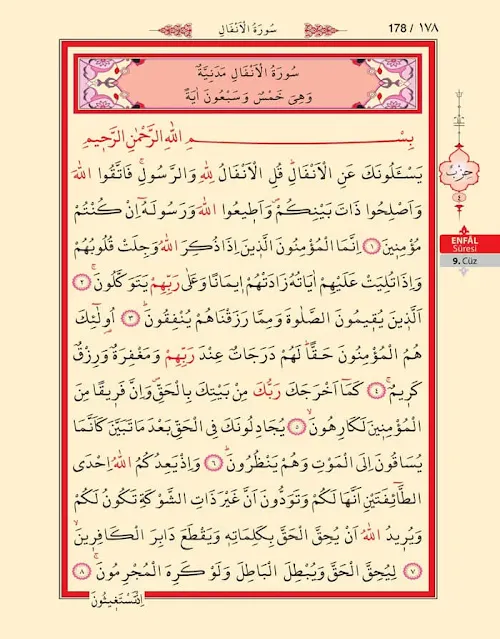 سُورَةُ الْاَنْفَالِ
178 / ١٧٨
سُورَةُ الْاَنْفَالِ مَدَنِيَّةٌ
وَهِيَ خَمْسٌ وَسَبْعُونَ اٰيَةً
بِسْمِ اللّٰهِ الرَّحْمٰنِ الرَّح۪يمِ
يَسْـَٔلُونَكَ عَنِ الْاَنْفَالِۜ قُلِ الْاَنْفَالُ لِلّٰهِ وَالرَّسُولِۚ فَاتَّقُوا اللّٰهَ
وَاَصْلِحُوا ذَاتَ بَيْنِكُمْۖ وَاَط۪يعُوا اللّٰهَ وَرَسُولَهُٓ اِنْ كُنْتُمْ
مُؤْمِن۪ينَ ﴿١﴾ اِنَّمَا الْمُؤْمِنُونَ الَّذ۪ينَ اِذَا ذُكِرَ اللّٰهُ وَجِلَتْ قُلُوبُهُمْ
وَاِذَا تُلِيَتْ عَلَيْهِمْ اٰيَاتُهُ زَادَتْهُمْ ا۪يمَانًا وَعَلٰى رَبِّهِمْ يَتَوَكَّلُونَۚ ﴿٢﴾
اَلَّذ۪ينَ يُق۪يمُونَ الصَّلٰوةَ وَمِمَّا رَزَقْنَاهُمْ يُنْفِقُونَۜ ﴿٣﴾ اُو۬لٰٓئِكَ
هُمُ الْمُؤْمِنُونَ حَقًّاۜ لَهُمْ دَرَجَاتٌ عِنْدَ رَبِّهِمْ وَمَغْفِرَةٌ وَرِزْقٌ
كَر۪يمٌۚ ﴿٤﴾ كَمَٓا اَخْرَجَكَ رَبُّكَ مِنْ بَيْتِكَ بِالْحَقِّۖ وَاِنَّ فَر۪يقًا مِنَ
الْمُؤْمِن۪ينَ لَكَارِهُونَۙ ﴿٥﴾ يُجَادِلُونَكَ فِي الْحَقِّ بَعْدَ مَا تَبَيَّنَ كَاَنَّمَا
يُسَاقُونَ اِلَى الْمَوْتِ وَهُمْ يَنْظُرُونَۜ ﴿٦﴾ وَاِذْ يَعِدُكُمُ اللّٰهُ اِحْدَى
الطَّٓائِفَتَيْنِ اَنَّهَا لَكُمْ وَتَوَدُّونَ اَنَّ غَيْرَ ذَاتِ الشَّوْكَةِ تَكُونُ لَكُمْ
وَيُر۪يدُ اللّٰهُ اَنْ يُحِقَّ الْحَقَّ بِكَلِمَاتِه۪ وَيَقْطَعَ دَابِرَ الْكَافِر۪ينَۙ
﴿٧﴾ لِيُحِقَّ الْحَقَّ وَيُبْطِلَ الْبَاطِلَ وَلَوْ كَرِهَ الْمُجْرِمُونَۚ ﴿٨﴾
اِذْ تَسْتَغ۪يثُونَ
حِزْبٌ
٤
ENFÂL
Sûresi
9. Cüz